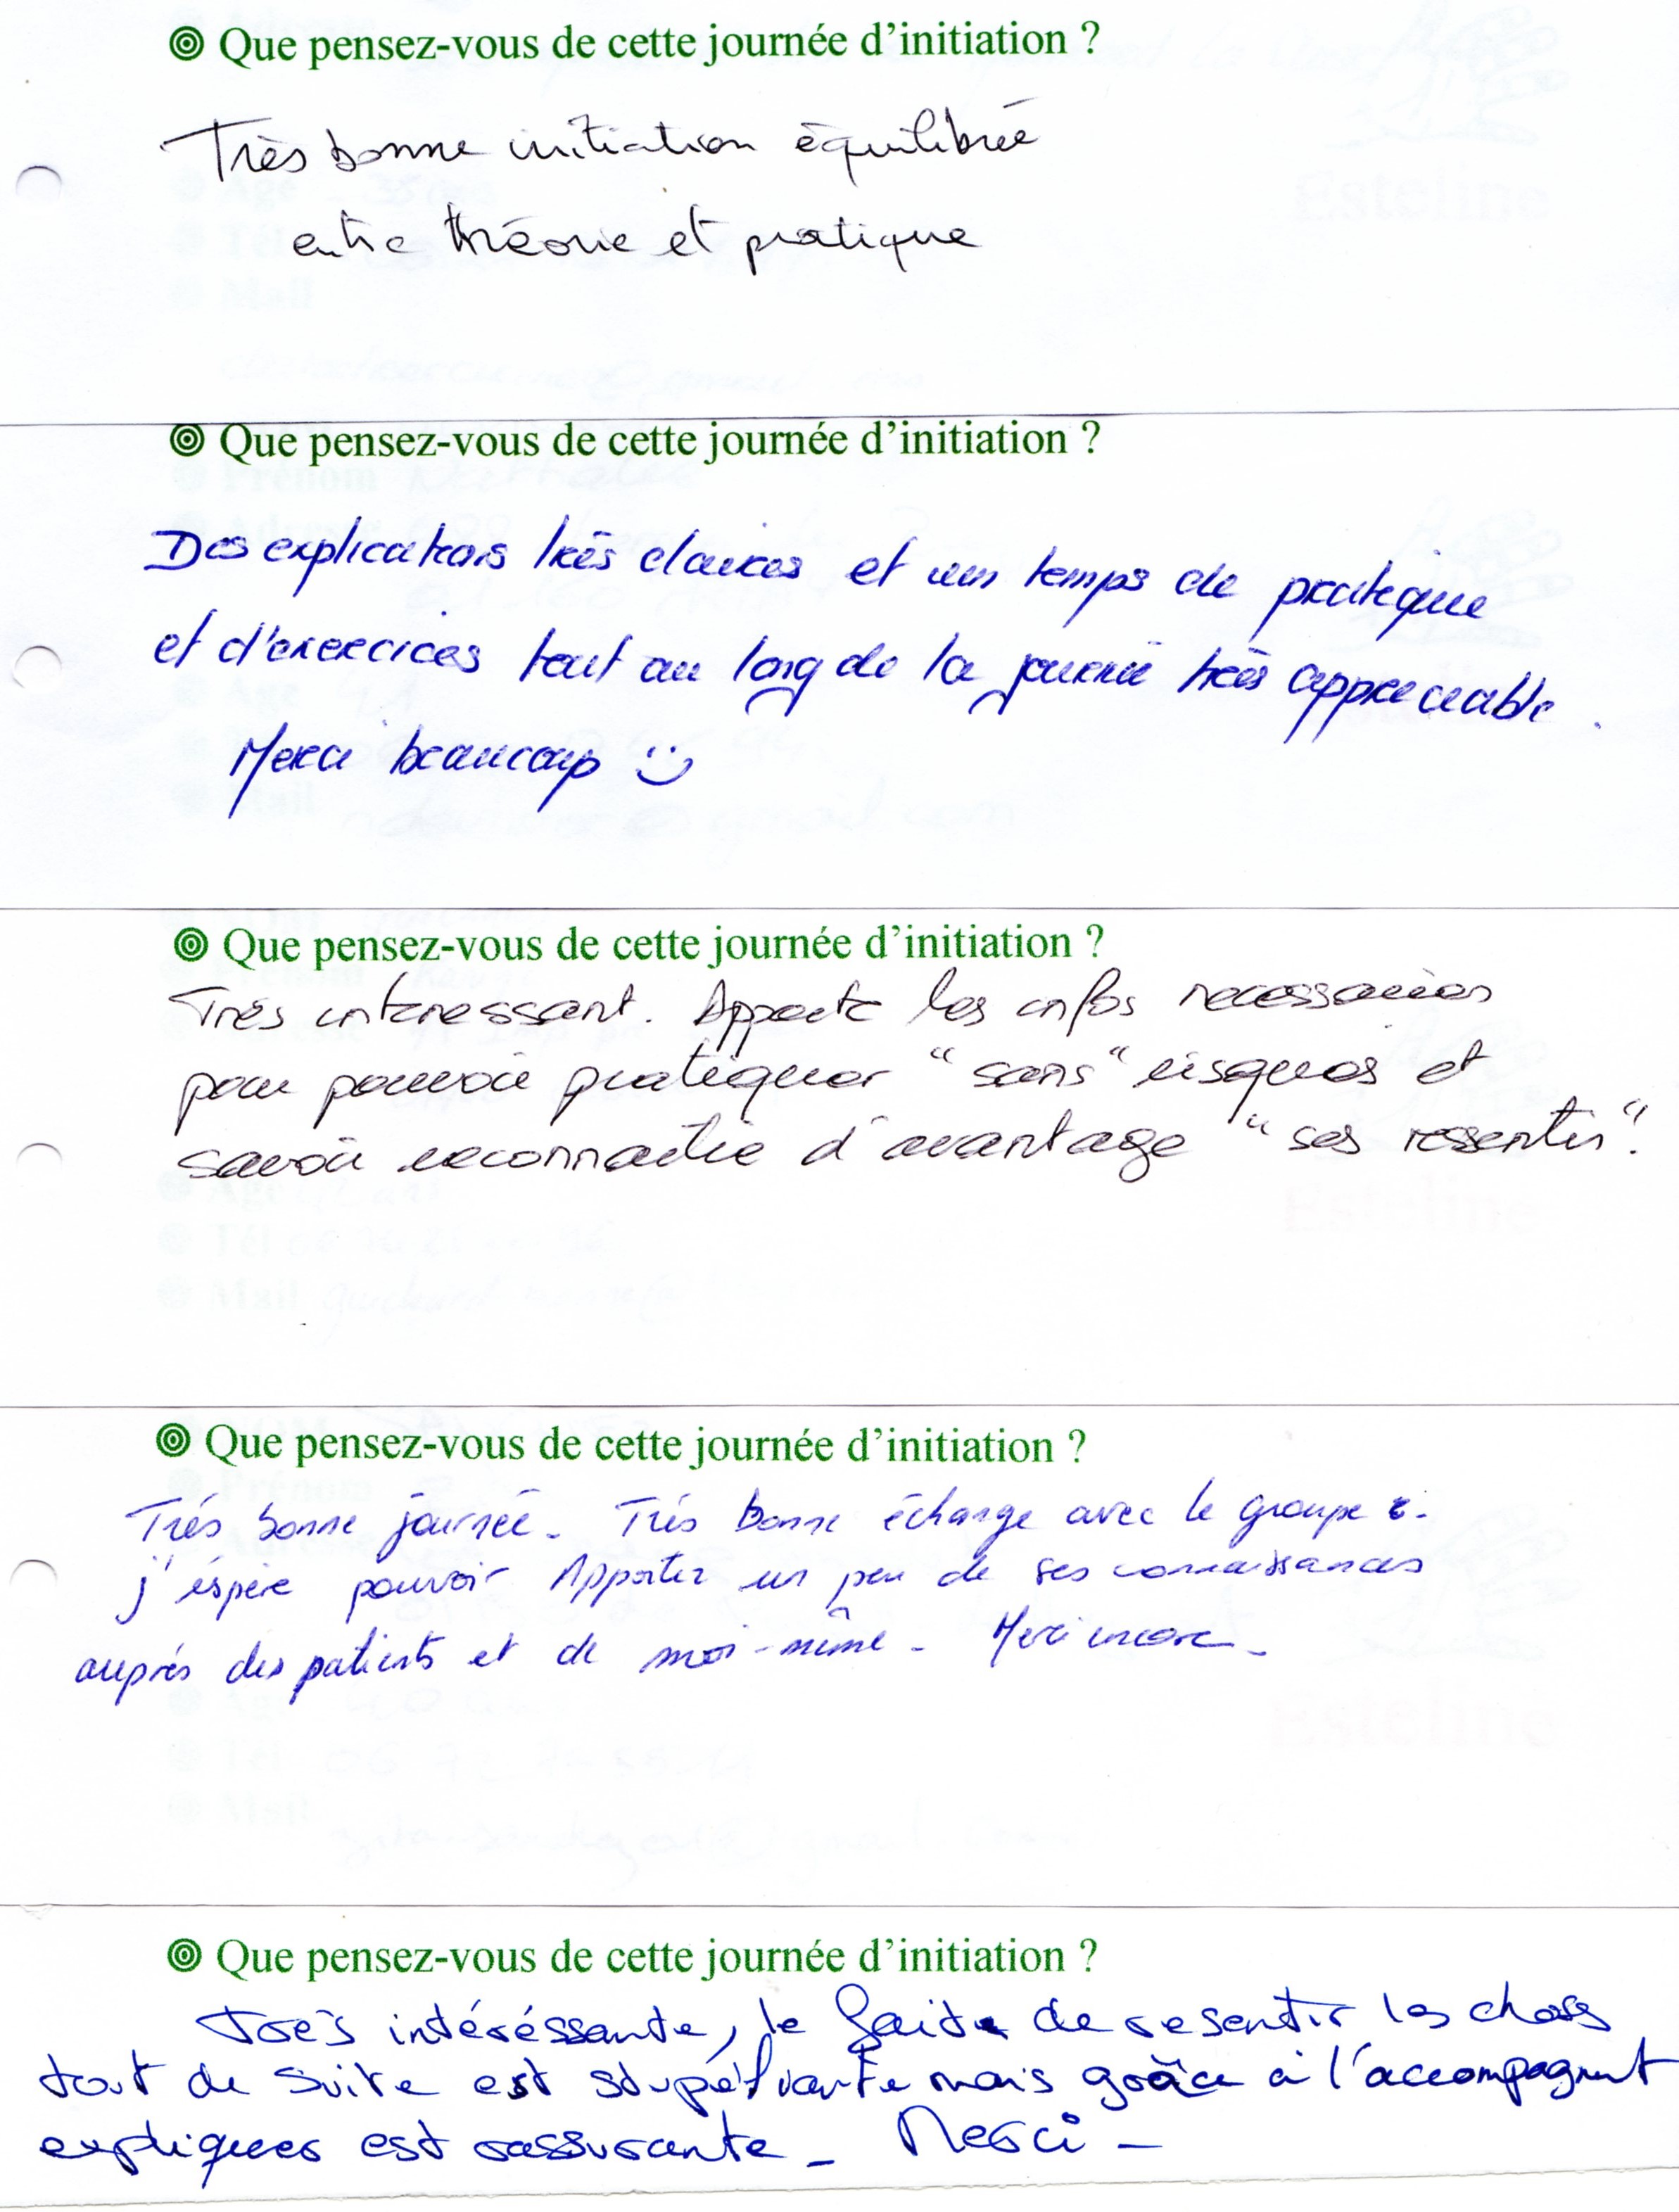 Que pensez-vous de cette journée d'initiation ?
Très bonne initiation équilibrée
entre théorie et pratique
Que pensez-vous de cette journée d'initiation ?
Des explications très claires et un temps de pratique
et d'exercices tout au long de la journée très appréciable.
Merci beaucoup
Que pensez-vous de cette journée d'initiation ?
Très interessant. Apporte les infos necessaires
pour pouvoir pratiquer "sans" risques et
savoir reconnaitre d'avantage "ses ressentis".
Que pensez-vous de cette journée d'initiation ?
Très bonne journée. Très bonne échange avec le groupe
j'éspère pouvoir Apporter un peu de ses connaissances
auprés des patients et de moi-même - Merci encore -
Que pensez-vous de cette journée d'initiation ?
Très intéréssante, le fait de resentir les choses
tout de suite est stupéfiante mais grâce à l'accompagnent
expliquer est rassurante - Merci -